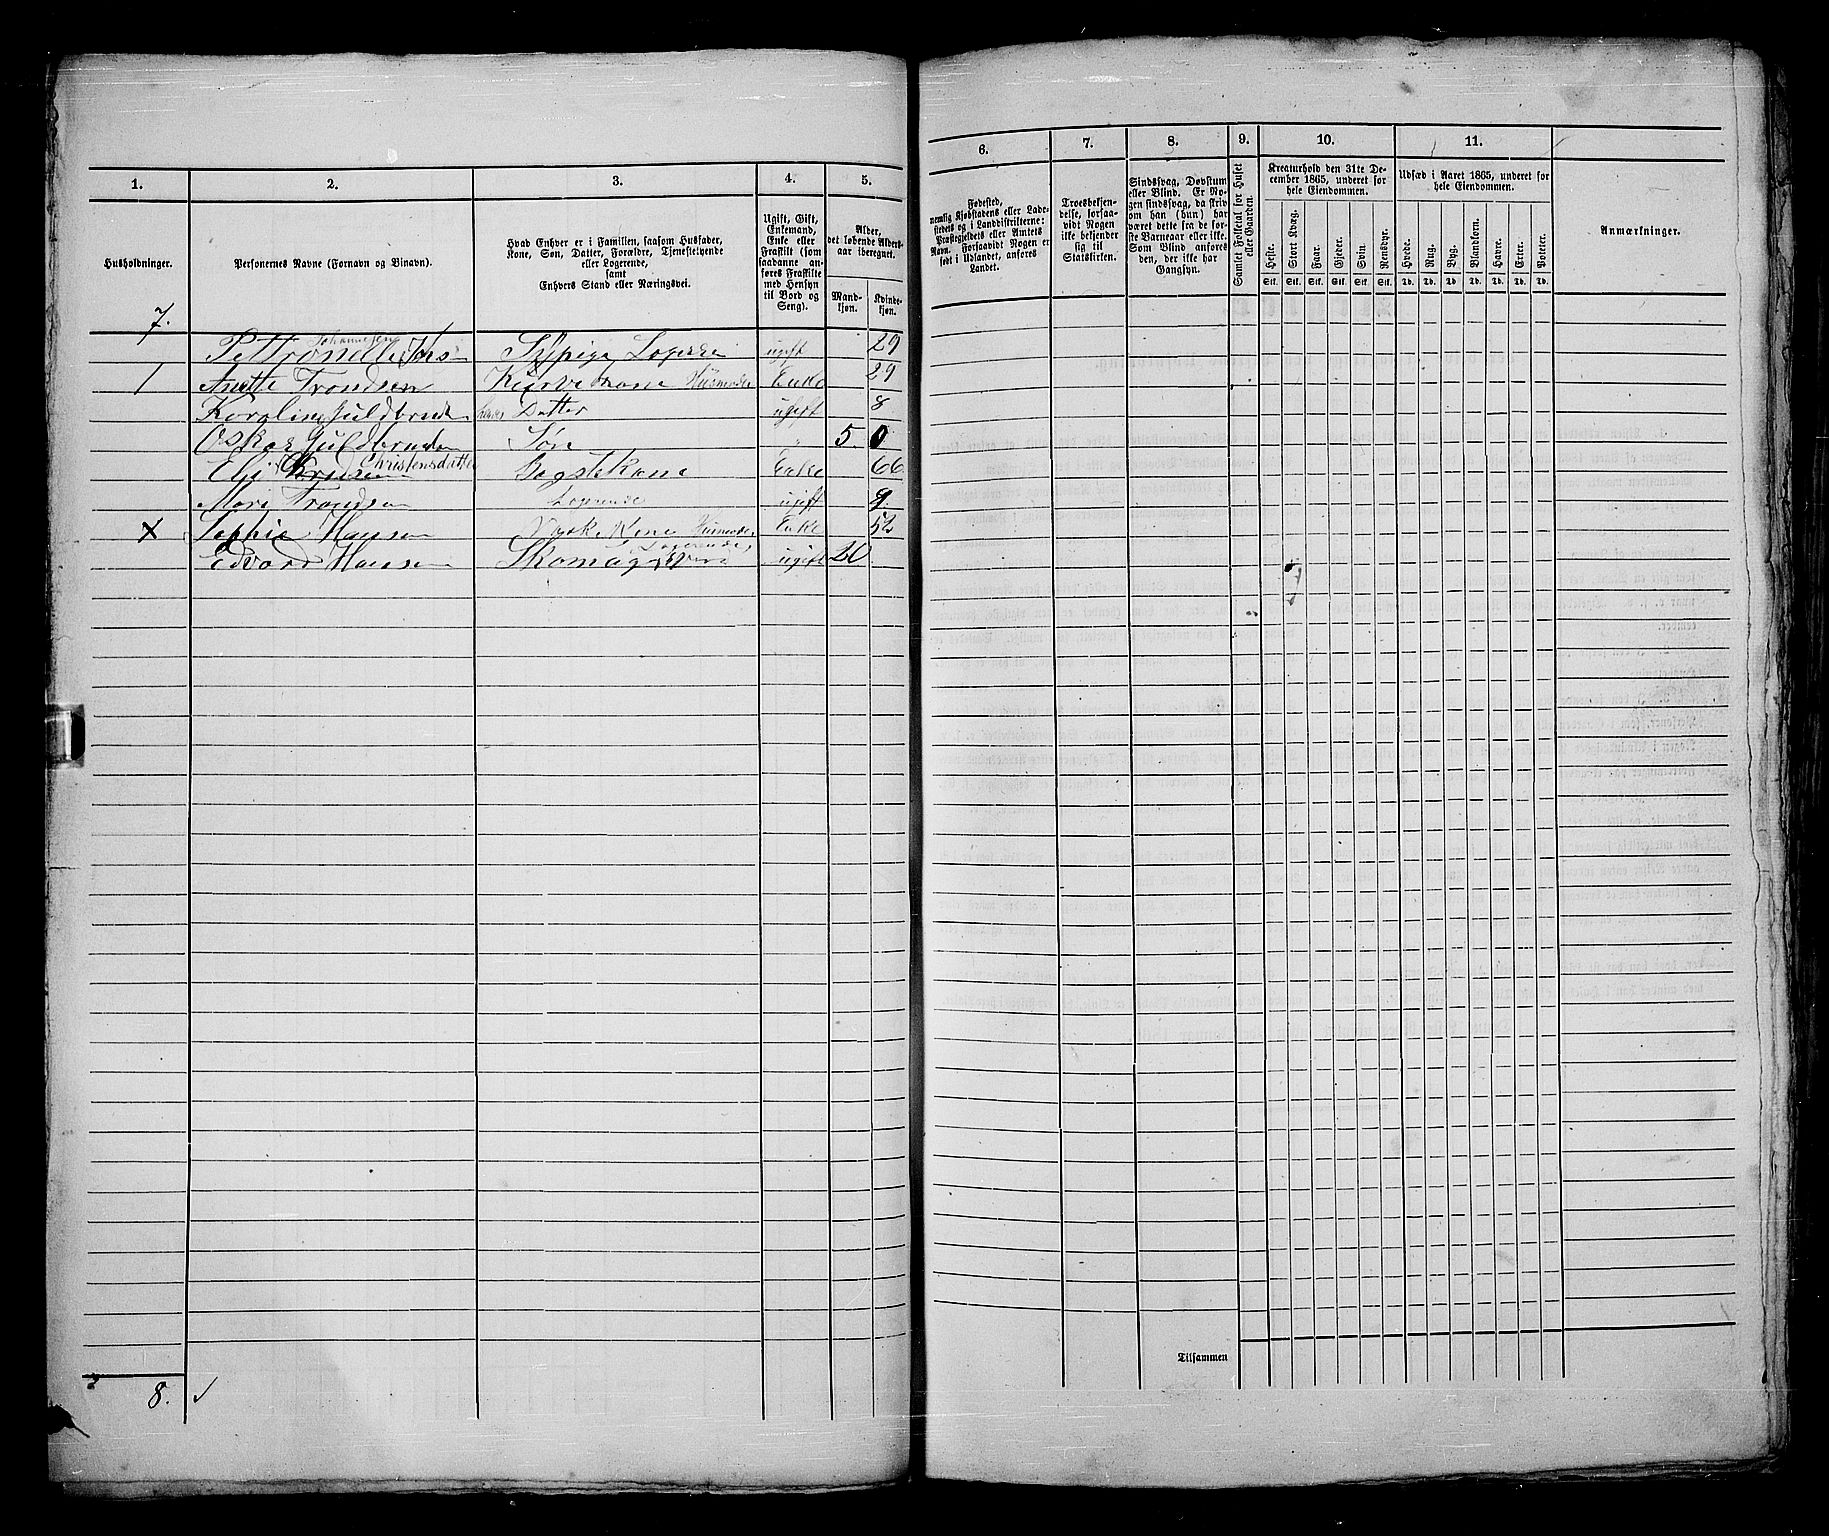 1.
2.
3.
4.
5.
Husholdninger.
Personernes Navne (Fornavn og Binavn).
Hvad Enhver er i Familien, saasom Husfader,
Kone, Søn, Datter, Forældre, Tjenestetyende
eller Logerende,
samt
Enhvers Stand eller Næringsvei.
Ugift, Gift,
Enkemand,
Enke eller
Fraskilt (som
saadanne an-
føres Fraskilte
med Hensyn
til Bord og
Seng).
Alder,
det løbende Alders-
aar iberegnet.
Mand-
kjøn.
Kvinde-
kjøn.
7.
Johannesen
Pettronelle Sypige Logerende ugift 29
1 Anette Trondsen Kurvekone Husmoder Enke 29
Karoline Guldbrand hendes Datter ugift 8
Oskar Guldbrandsen Søn " 5 0
Christensdatter
Eli Enke 66
Mari Trondsen Logerende ugift 9
x Sophie Hansen Vaskekone Husmoder Enke 52
Logerende
Edvard Hansen Skomager ugift 20
8. ✓
6.
7.
8.
9.
10.
11.
Fødested,
nemlig Kjøbstadens eller Lade-
stedets og i Landdistrikterne:
Præstegjeldets eller Amtets
Navn. Forsaavidt Nogen er
født i Udlandet, anføres
Landet.
Troesbekjen-
delse, forsaa-
vidt Nogen
ikke bekjender
sig til
Statskirken.
Sindssvag, Døvstum
eller Blind. Er No-
gen sindssvag, da skriv
om han (hun) har
været dette fra de før-
ste Barneaar eller ikke.
Som Blind anføres
den, der ikke har
Gangsyn.
Samlet Folketal for Huset
eller Gaarden.
Kreaturhold den 31te De-
cember 1865, underet for
hele Eiendommen.
Heste.
Stort Kvæg.
Faar.
Gjeder.
Svin.
Rensdyr.
Stk. Stk. Stk. Stk. Stk. Stk.
Udsæd i Aaret 1865, underet for
hele Eiendommen.
Hvede.
Rug.
Byg.
Blandkorn.
Havre.
Erter.
Poteter.
Td. Td. Td. Td. Td. Td. Td.
Anmærkninger.
Tilsammen